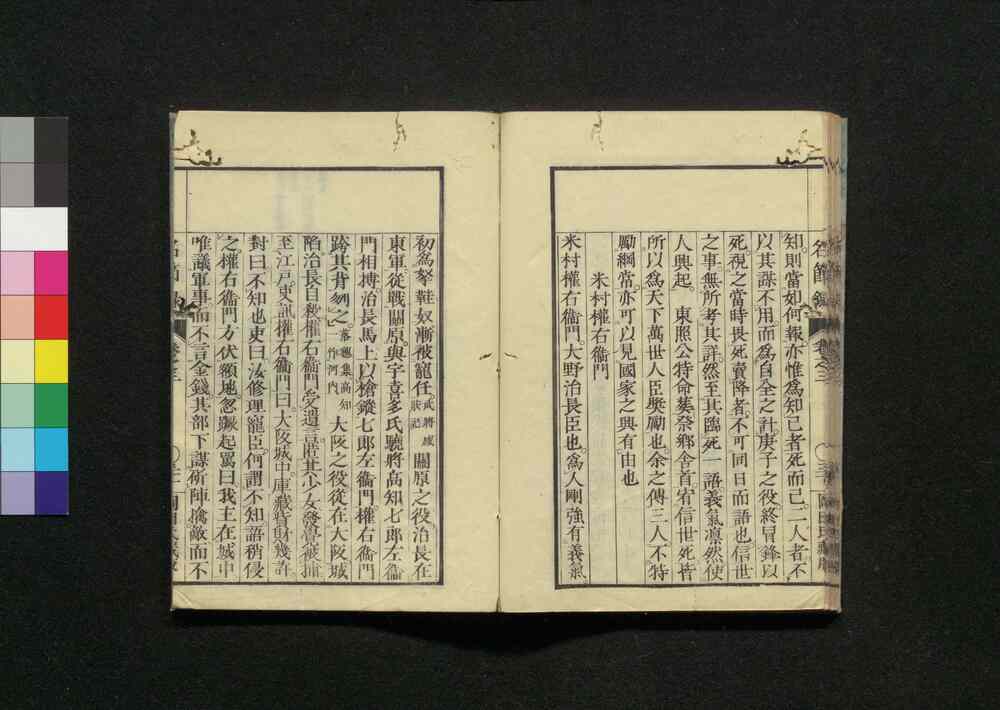 知則當如何報亦惟爲知己者死而已二人者不
以其謀不用而爲自全之計庚子之役終冒鋒以
死視之當時畏死賣降者不可同日而語也信世
之事無所考其詳然至其臨死一語義氣凛然使
人興起 東照公特命葬発鄕舎首宥信世死皆
所以爲天下萬世人臣奬勵也余之傳三人不特
勵綱當亦可以見國家之興有由也
米村權右衞門
米村權右衞門大野治長臣也爲人剛強有義氣
初爲拏鞋奴漸被寵任武將感狀記關原之役治長在
東軍從戰關原與宇喜多氏驍將高知七郎左衞
門相搏治長馬上以槍鏦七郎左衞門權右衞門
踣其背刎之落穗集高知作河内大阪之役從在大阪城
陷治長自殺權右衞門受遺言匿其少女發覺被捕
至江戸吏訊權右衞門曰大阪城中庫藏貨財幾許
對曰不知也吏曰汝修理寵臣何謂不知語稍侵
之權右衞門方伏額地忽蹶起罵曰我主在城中
唯議軍事而不言金錢其部下謀斫陣擒敵而不